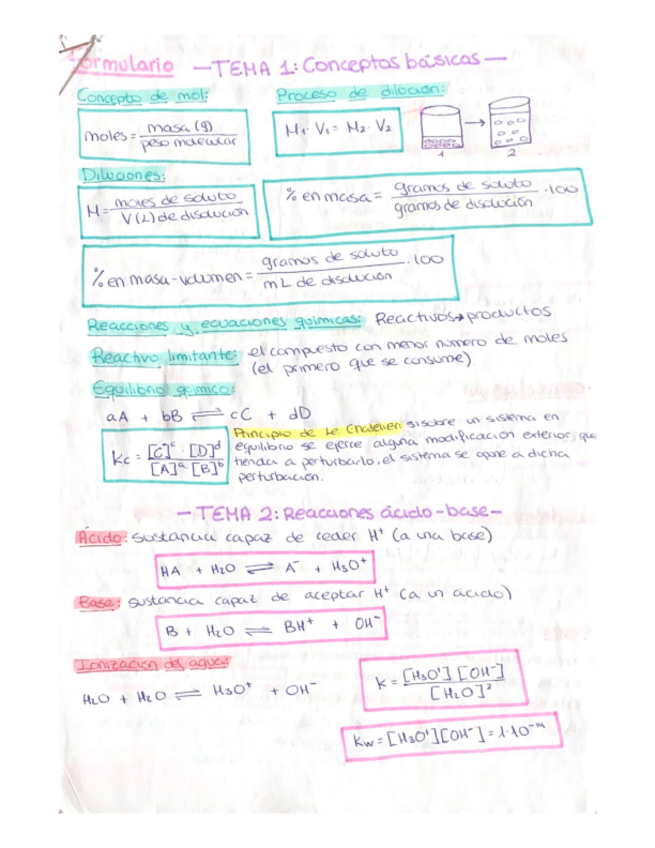 Formulario — TEMA 1: Conceptos básicos —
Concepto de mol:
moles = masa (g) / peso molecular
Proceso de dilución:
M₁· V₁ = M₂· V₂
1
2
Diluciones:
M = moles de soluto / V(L) de disolución
% en masa = gramos de soluto / gramos de disolución · 100
% en masa-volumen = gramos de soluto / mL de disolución · 100
Reacciones y ecuaciones químicas: Reactivos → productos
Reactivo limitante: el compuesto con menor número de moles
(el primero que se consume).
Equilibrio químico:
aA + bB ⇌ cC + dD
Kc = [C]ᶜ · [D]ᵈ / [A]ᵃ [B]ᵇ
Principio de Le Chatelier: si sobre un sistema en
equilibrio se ejerce alguna modificación exterior, que
tienda a perturbarlo, el sistema se opone a dicha
perturbación.
— TEMA 2: Reacciones ácido-base —
Ácido: sustancia capaz de ceder H⁺ (a una base)
HA + H₂O ⇌ A⁻ + H₃O⁺
Base: sustancia capaz de aceptar H⁺ (a un ácido)
B + H₂O ⇌ BH⁺ + OH⁻
Ionización del agua:
H₂O + H₂O ⇌ H₃O⁺ + OH⁻
K = [H₃O⁺] [OH⁻] / [H₂O]²
Kw = [H₃O⁺][OH⁻] = 1·10⁻¹⁴